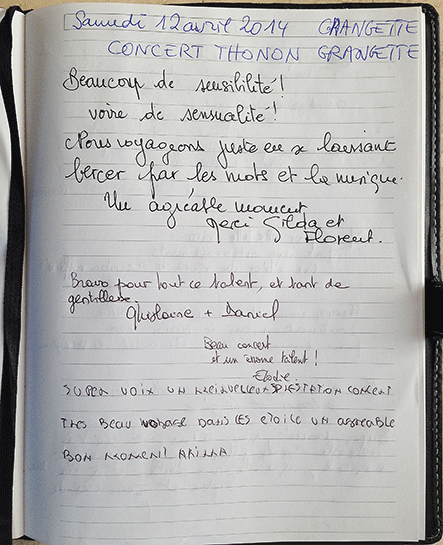 Samedi 12 avril 2014 GRANGETTE
CONCERT THONON GRANGETTE
Beaucoup de sensibilité!
voire de sensualité!
Nous voyageons juste en se laissant
bercer par les mots et la musique.
Un agréable moment
Merci Gilda et
Florent.
Bravo pour tout ce talent, et tant de
gentillesse.
Ghislaine + Daniel
Beau concert
et un énorme talent!
Elodie
SUPER VOIX UN MERVEILLEUX PRESTATION CONCERT
TRES BEAU VOYAGE DANS LES ETOILE UN AGREABLE
BON MOMENT